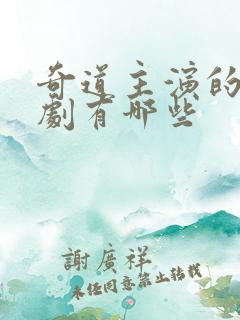 奇道主演的
劇有哪些
謝廣祥
未經同意禁止轉載